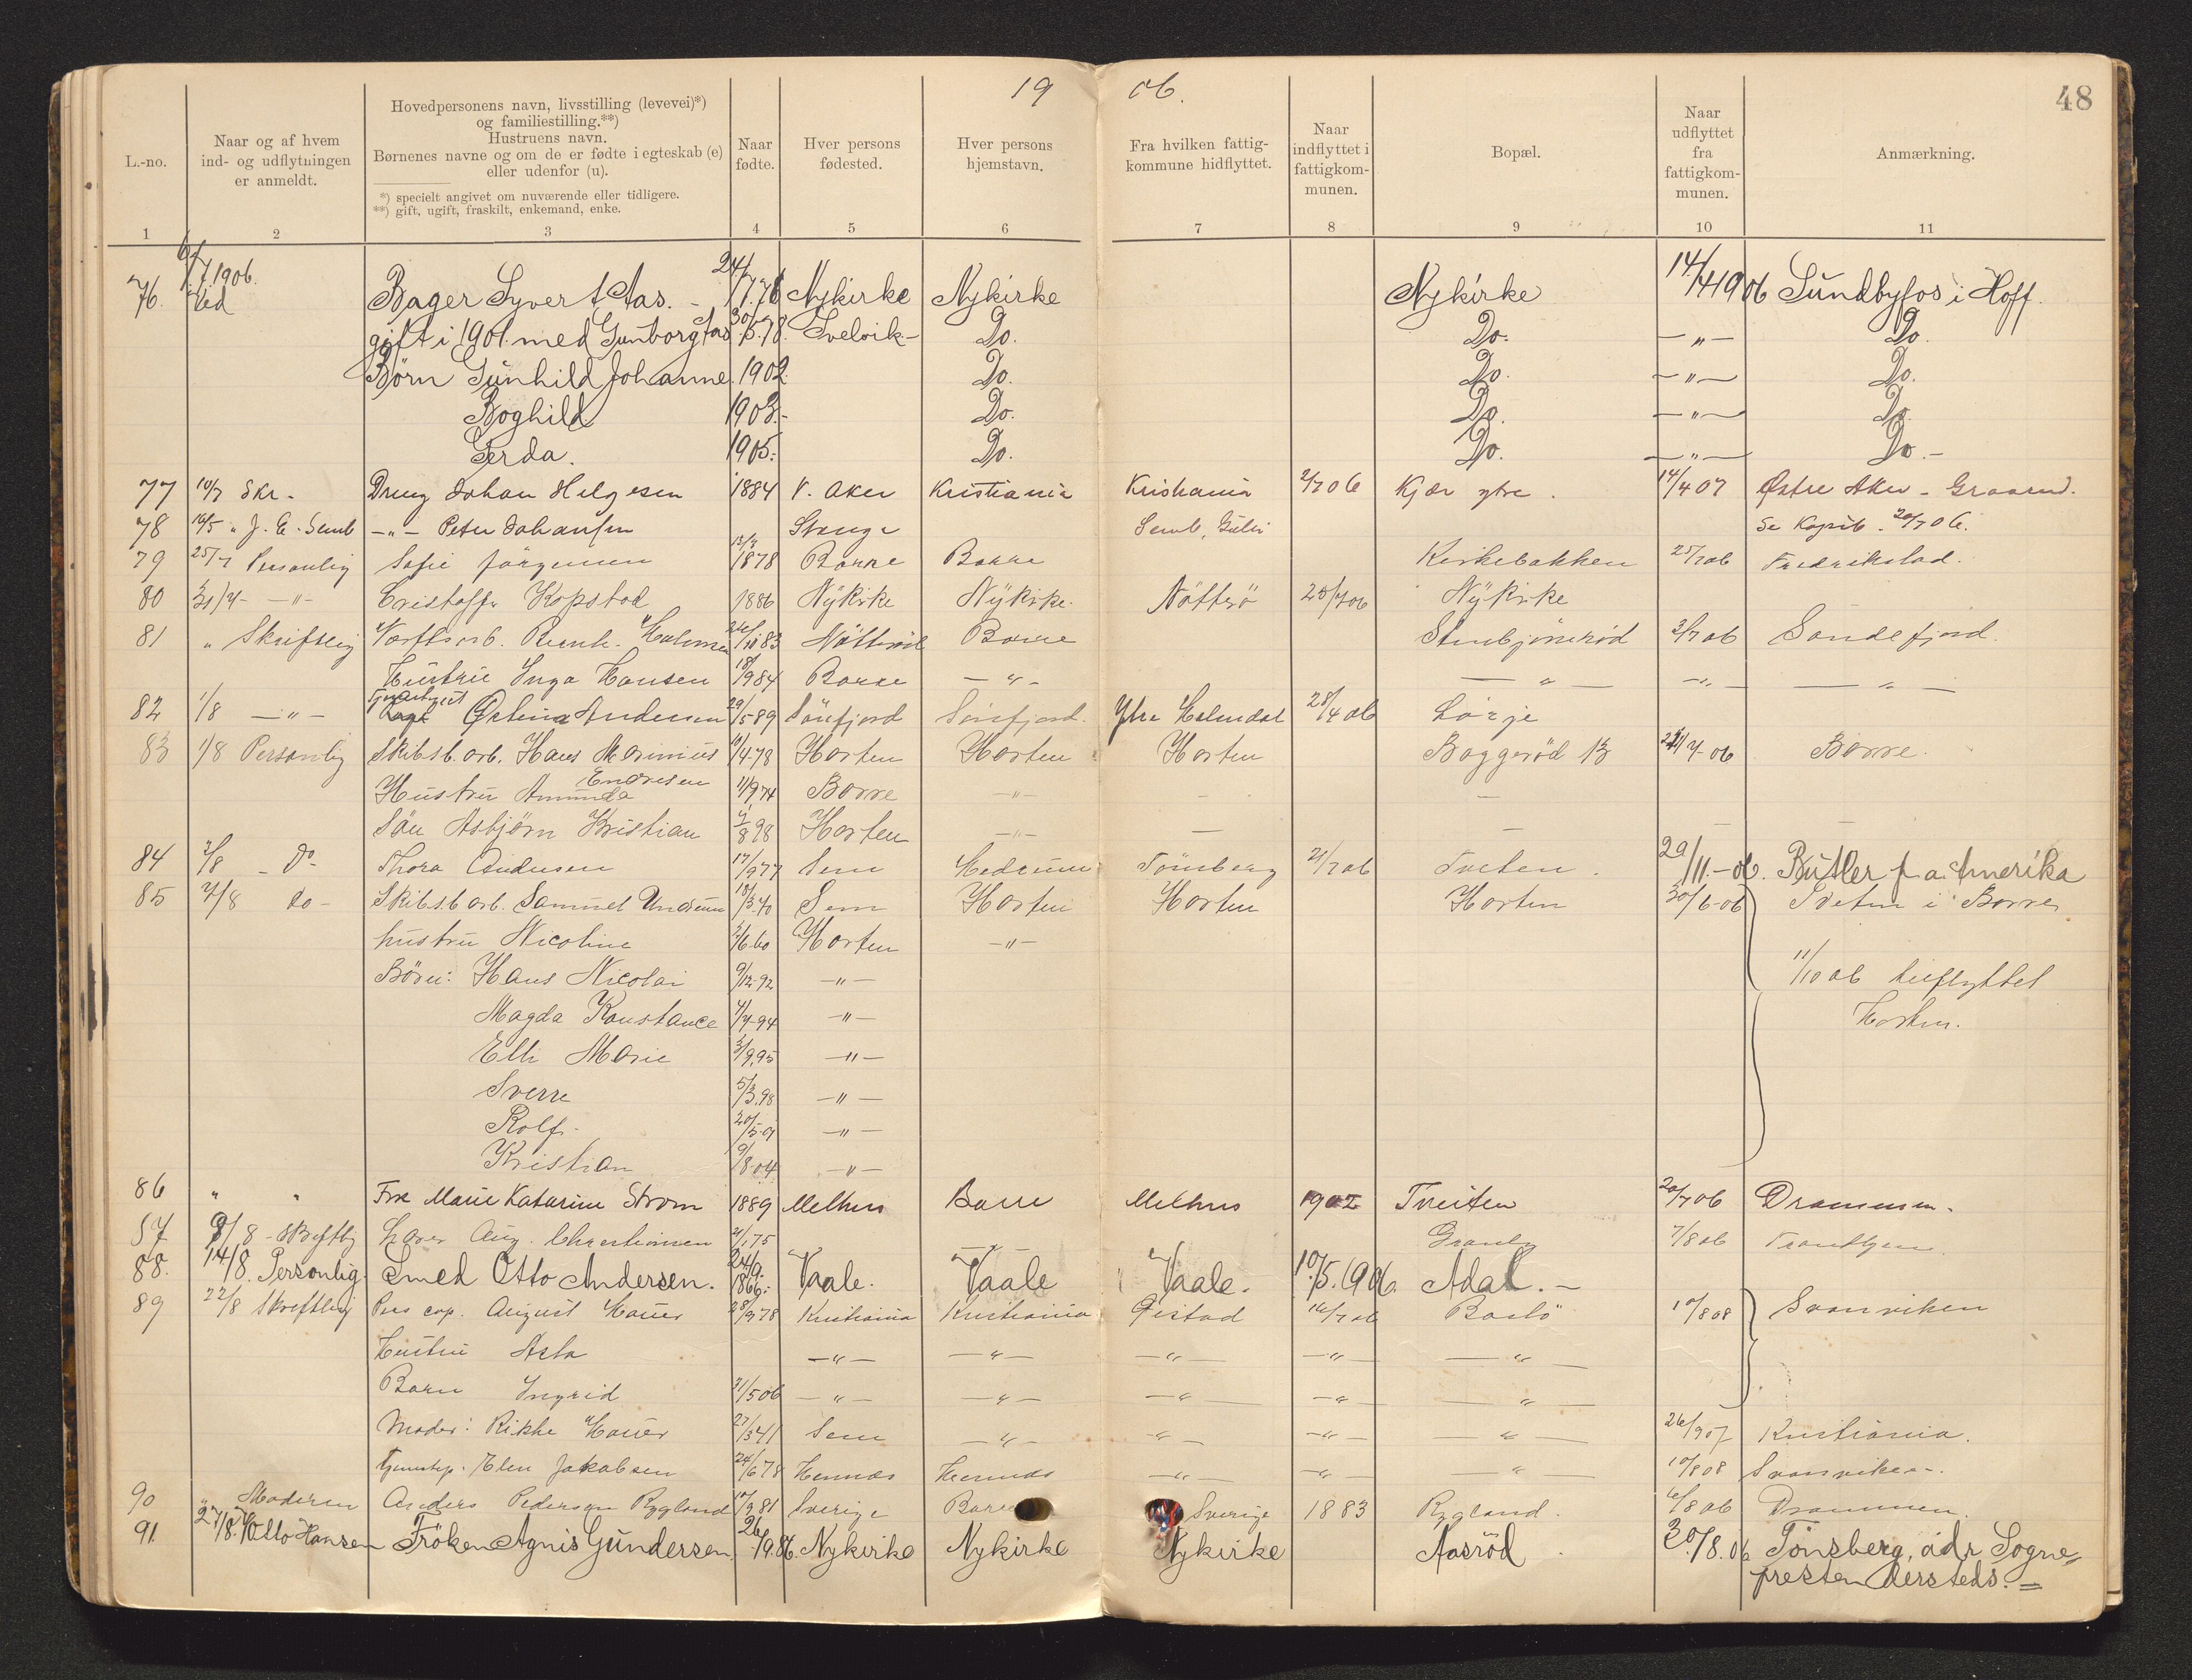 19 06.
48
L.-no.
Naar og af hvem
ind- og udflytningen
er anmeldt.
Hovedpersonens navn, livsstilling (levevei)*)
og familiestilling.**)
Hustruens navn.
Børnenes navne og om de er fødte i egteskab (e)
eller udenfor (u).
*) specielt angivet om nuværende eller tidligere.
**) gift, ugift, fraskilt, enkemand, enke.
Naar
fødte.
Hver persons
fødested.
Hver persons
hjemstavn.
Fra hvilken fattig-
kommune hidflyttet.
Naar
indflyttet i
fattigkom-
munen.
Bopæl.
Naar
udflyttet
fra
fattigkom-
munen.
Anmærkning.
1 2 3 4 5 6 7 8 9 10 11
76. 6/7 1906. Ved Bager Syvert Aas. - 24/7.76 Nykirke Nykirke Nykirke 14/4 1906 Sundbyfos i Hoff.
gift i 1901. med Gunborg Aas 30/5.78. Svelvik - Do. Do. -„- Do.
Børn Gunhild Johanne. 1902. Do. Do. -„- Do.
Boghild 1903.- Do. Do. -„- Do.
Gerda. 1905.- Do. Do. -„- Do.-
77 10/7 Skr. Dreng Johan Helgesen 1884 V. Aker Kristiania Kristiania 2/7 06 Kjær ytre. 14/4 07 Østre Aker -
78 16/5 „ J. E. Semb -„- Peter Johansen Stange Semb, Se 20/7 06.
79 25/7 Personlig Sofie Jörgensen 13/7 1878 Borre Borre Kirkebakken 25/7 06 Fredrikstad.
80 31/7 -„- Cristoffer Kopstad 1886 Nykirke Nykirke. Nötterö 20/7 06 Nykirke
81 „ Skriftlig Verftsarb. Holmsen 83 Nötterö Borre Stenbjönnerød 3/7 06 Sandefjord.
Hustru Inga Hansen 18/9 84 Borre -„- -„- -„- -„-
82 1/8 -„- Andersen 29/5 89 Sönfjord Sönfjord. Ytre Holmedal 28/4 06 Lörje
83 1/8 Personlig Skibsb. arb. Hans Marinius 10/4-78 Horten Horten Horten Baggerød 13 24/7-06 Borre.
Endresen
Hustru Amunda 11/9 74 Borre -„- - -
Sön Asbjörn Kristian 4/8 98 Horten -„- - -
84 2/8 - Do Thora Andersen 17/9 77 Sem Hedrum Tönsberg 21/7 06 Tveten. 29/11.-06. Butler p.a. Amerika
85 7/8 do- Skibsb. arb. Samuel Andersen 18/3 40 Sem Horten Horten Horten 30/6-06 Tveten i Borre
hustru Nicoline 2/6.60 Horten -„-
Børn: Hans Nicolai 9/12-92 -„- 11/10 06 tilflyttet
Magda Konstance 4/7-94 -„- Horten.
Elli Marie 3/9.95 -„-
Sverre 5/3.98 -„-
Rolf. 20/5-01 -„-
Kristian 9/8.04 -„-
86 „ „ Frk Marie Katarine Strøm 1889 Melhus Borre Melhus 1902 Tveiten 20/7 06 Drammen.
87 9/8 - Skriftlig Lærer Aug. Christiansen 2/1 75 Granly 7/8 06 Trondhjem.
88. 14/8. Personlig. Smed Otto Andersen. 24/9. 1866.- Vaale. Vaale Vaale. 10/5. 1906. Adal. -
89 22/8 Skriftlig August Hauer 28/9 78 Kristiania Kristiania Gistad 16/7 06 Bastö 10/8 08 Svanviken
Hustru Asta -„- -„- -„- -„- -„-
Barn Ingrid 31/5 06 -„- -„- -„- -„- -„-
Moder: Rikke Hauer 27/3 41 Sem -„- -„- -„- -„- 26/9 07 Kristiania.
Tjenestep. Elen Jakobsen 24/6 78 Hennæs Hennæs -„- -„- -„- 10/8 08 Svanviken -.
90 „ Moderen Anders Pedersen Rygland 10/9 81 Sverige Borre Sverige 1883 Rygland. 6/8 06 Drammen.
91. 27/8. Otto Hansen Fröken Agnis Gundersen. 26/9.86. Nykirke Nykirke Nykirke Aasröd. 30/8.06 Tönsberg, adr. Sogne-
presten Aersteds. =